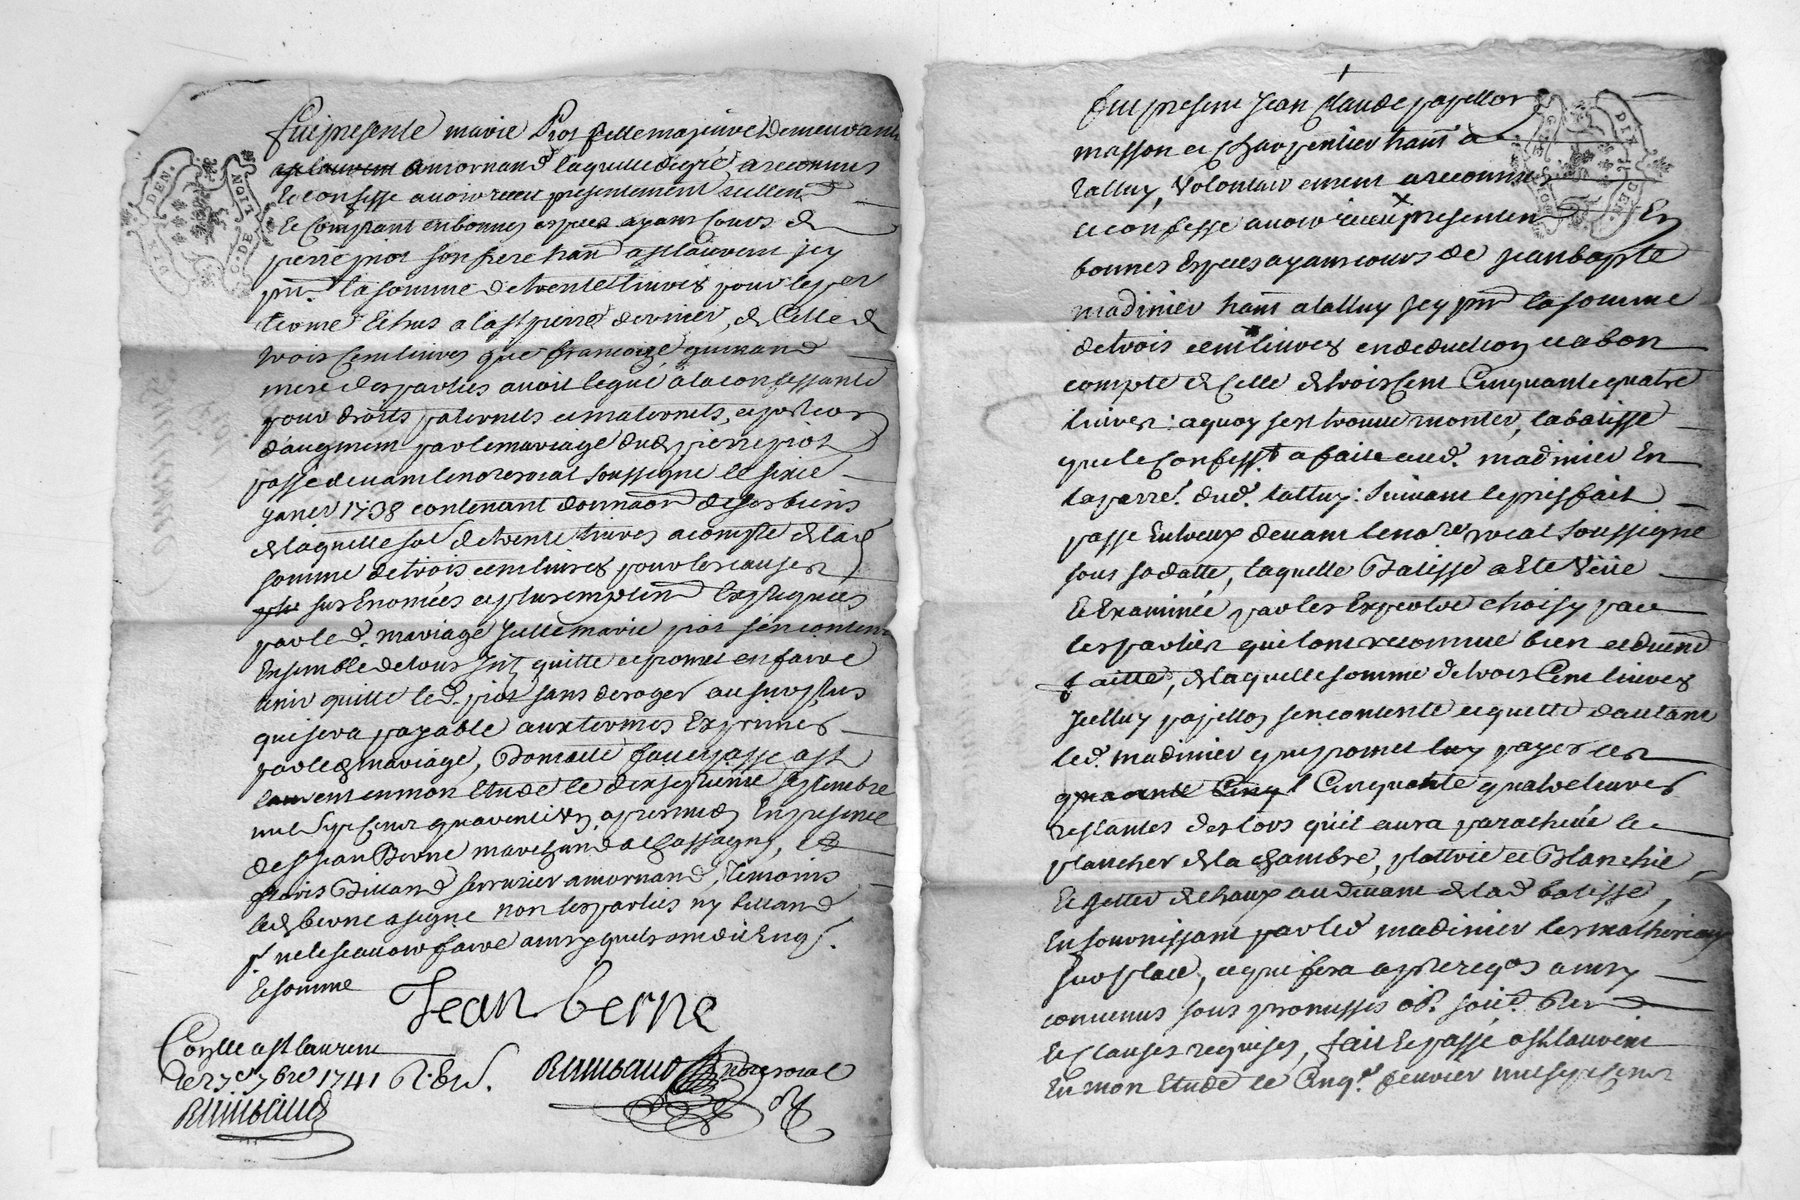 fut presente marie piot fille majeure demeurant
a st laurent a mornand laquelle de gré a reconnu
et confesse avoir receu presentement reellemt
et comptant en bonnes especes ayant cours de
pierre piot son frere hant a st laurent jcy
pnt la somme de trente livres pour le per
terme echus a la st pierre dernier, de celle de
trois cent livres que francoize guinand
mere des parties avoit legué a la confessante
pour droits paternels et maternels, et portion
d'augment par le mariage dud. pierre piot
passé devant le nore royal soussigné le sixie
janer 1738 contenant donnaon de ses biens
de laquelle so͞e de trente livres a compte de lad
somme de trois cent livres pour les causes
sus Enoncées et plus emplemt Expliquées
par le d. mariage jcelle marie piot s'en contente
Ensemble de tous quitte et promet en faire
tenir quitte led. piot sans deroger au surplus
qui sera payable aux termes Exprimés
par led mariage, Dont acte fait et passé a st
laurent en mon Etude le dix septieme septembre
mil sept cent quarente un apres midy En presence
de sr jean Berne marchand a Chassagny, et
Billand serrurier a mornand, temoins
led berne a signé non les parties ny billand
p. ne le scavoir faire ainsy quils ont dit Enqs.
Et sommé
Jean berne
Conllé a st laurent
le 27e 7bre 1741 R.
Raimbaud nore royal
Raimbaud
DIX DEN.
G. DE LION
fut present jean claude papillon
masson et charpentier hant a
talluy, volontairement a reconnu
et confesse avoir receu presentemt En
bonnes Especes ayant cours de jean bapte
madinier hant a talluy jcy pnt la somme
de trois cent livres en deduction et a bon
compte de celle de trois cent cinquante quatre
livres: a quoy s'est trouvé monter, la batisse
que le confesst a faite aud. madinier En
la parre dud. talluy: suivant le prisfait
passé Entreux devant le nore royal soussigné
sous sa datte, laquelle Batisse a Eté veüe
et Examinée par les Expertre choisy par
les parties qui l'ont reconnue bien et duemt
faitte, de laquelle somme de trois cent livres
jcelluy papillon s'en contente et quitte d'autant
led. madinier que promet luy payer les
cinquante quatre livres
restantes des lors qu'il aura parachevé le
plancher de la chambre, plattrie et Blanchie,
et getter de chaux au devant de lad batisse,
En fournissant par led madinier les matheriaux
sur place, ce qui sera apres ainsy
convenus sous promesses ob.
et clauses requises, fait et passé a st laurent
En mon Etude le cinqe fevrier mil sept cent
DIX DEN.